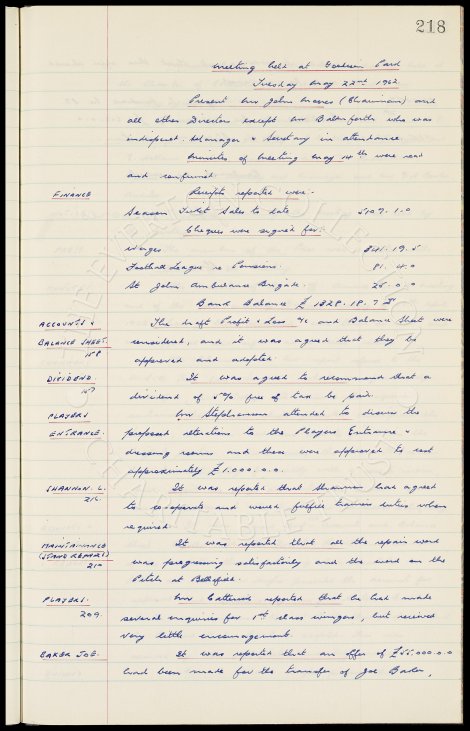 218
Meeting held at Goodison Park
Tuesday May 22nd 1962
Present Mr John Moores (Chairman) and
all other Directors except Mr Balmforth who was
indisposed. Manager & Secretary in attendance.
Minutes of Meeting May 14th were read
and confirmed
FINANCE Receipts reported were.
Season Ticket Sales to date 5109. 1. 0
Cheques were signed for.
Wages. 841. 19. 5
Football League re Pensions. 81. 4. 0
St John Ambulance Brigade. 25. 0. 0
Bank Balance £ 1328. 18. 7
ACCOUNTS & The draft Profit & Loss a/c and Balance Sheet were
BALANCE SHEET. considered, and it was agreed that they be
158 approved and adopted
DIVIDEND It was agreed to recommend that a
157 dividend of 5% free of tax be paid.
PLAYERS Mr Stephenson attended to discuss the
ENTRANCE. proposed alterations to the Players Entrance &
dressing rooms and these were approved to cost
approximately £1.000. 0. 0.
SHANNON L. It was reported that Shannon had agreed
216. to co-operate and would fulfil training duties when
required
MAINTAINANCE It was reported that all the repair work
(STAND REPAIRS) was progressing satisfactorily and the work on the
210 Pitch at Bellefield.
PLAYERS. Mr Catterick reported that he had made
209. several enquiries for 1st class wingers, but received
very little encouragement
BAKER JOE. It was reported that an offer of £55.000.0.0
had been made for the transfer of Joe Baker,
EVERTON COLLECTION
CHARITABLE TRUST